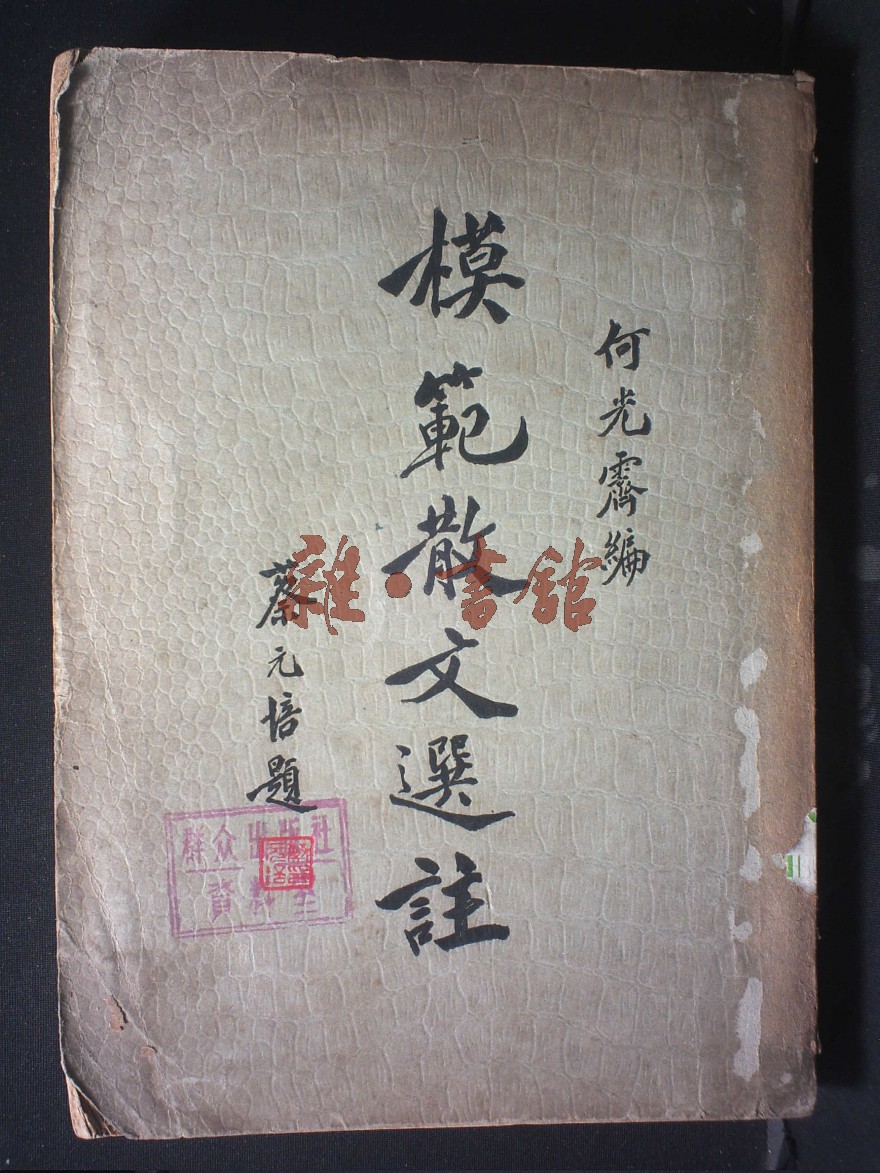 何光霽編
模範散文選註
蔡元培題
雜·書館
群众出版社
資料室